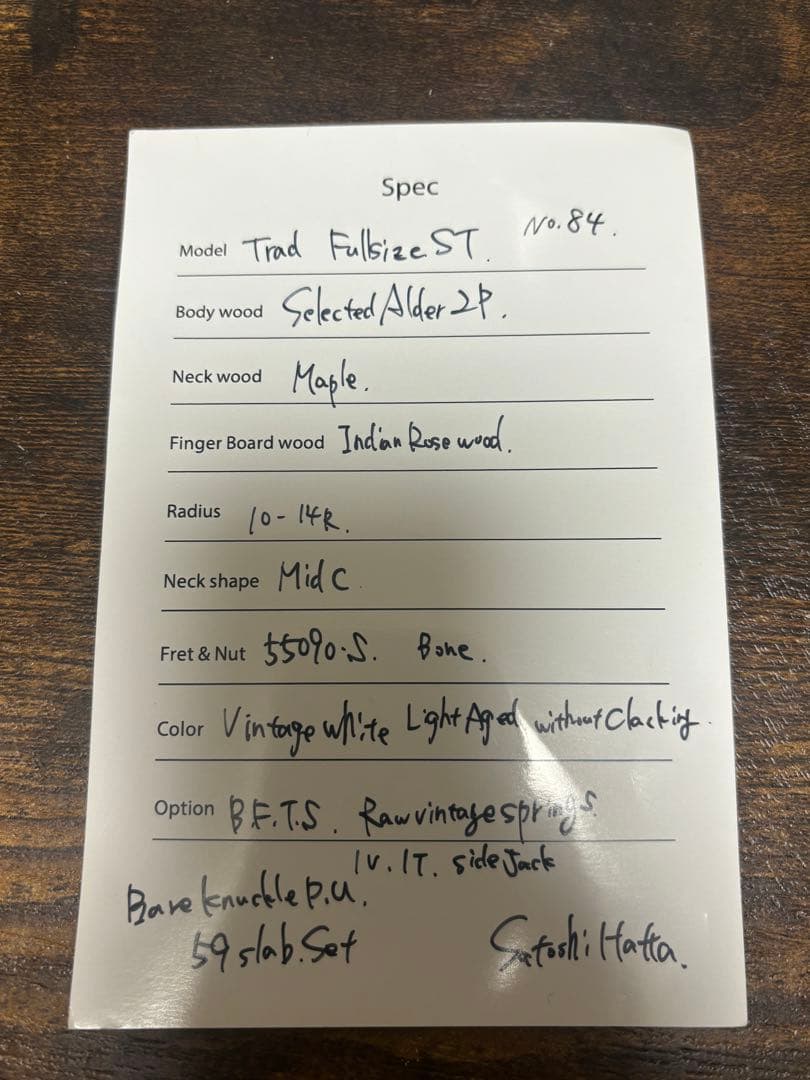 Spec
No.84.
Model Trad Fullsize ST.
Body wood Selected Alder 2P.
Neck wood Maple.
Finger Board wood Indian Rose wood.
Radius 10-14R.
Neck shape Mid C
Fret & Nut 55090.S. Bone.
Color Vintage White Light Aged without Clacking.
Option B.F.T.S. Raw vintage springs.
1V.1T. side Jack
Bare knuckle P.U.
59 slab.Set
Satoshi Hatta.